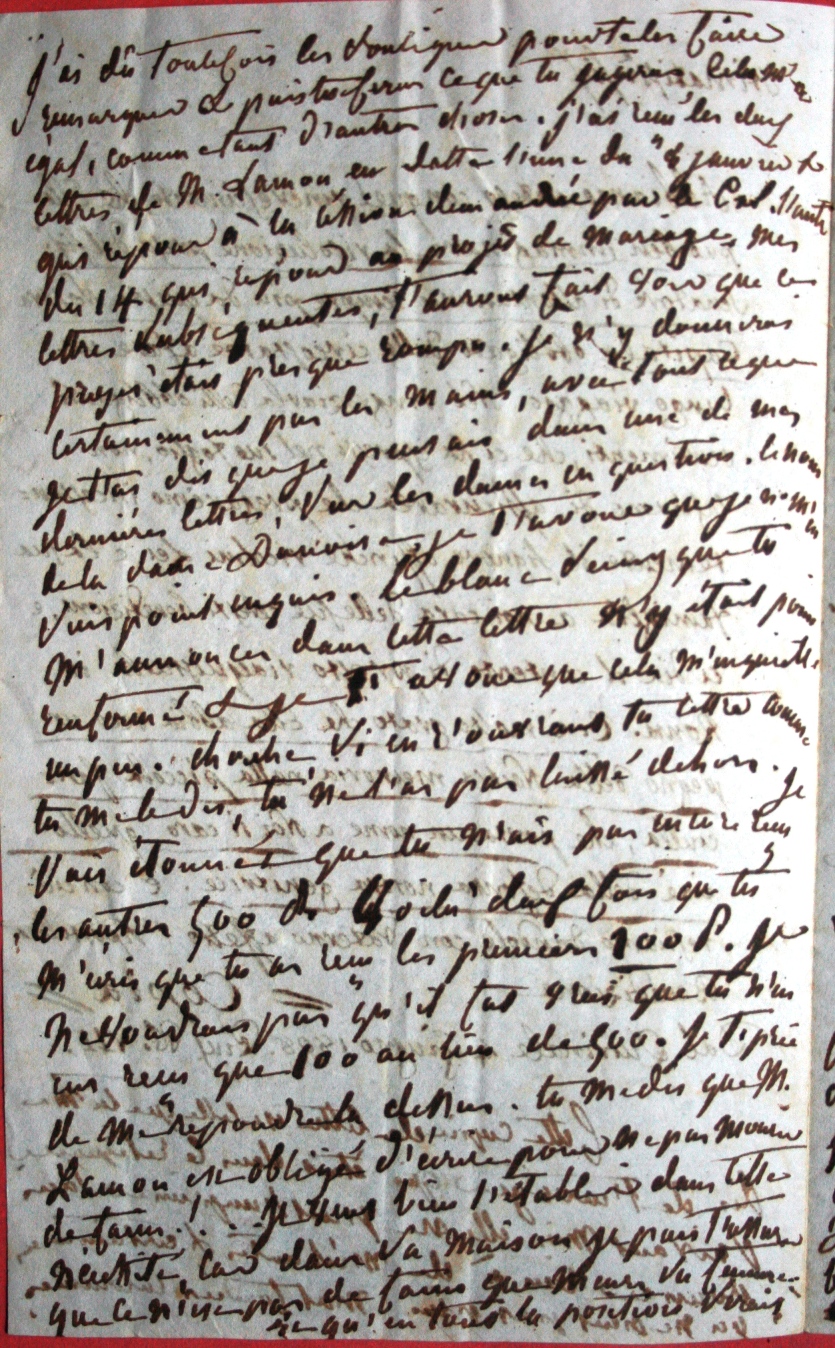 J'ai dû toutefois les souligner pour te les faire
remarquer & puis tu feras ce que tu jugeras. Cela m'est
égal, comme étant d'autres choses. j'ai reçu les deux
lettres de M. Lamon en datte l'une du 8 janvier &
qui répond à la cession demandée par le Col. l'autre
du 14 qui répond au projet de mariage. Mes
lettres subséquentes, t'auront fait voir que ce
projet était presque rompu. Je n'y donnerai
certainement pas les mains, avec tout ce que
je t'ai dis que je pensais dans une de mes
dernières lettres, sur les dames en question. le nom
de la dame je t'avoue que je ne m'en
suis point enquis. Le blanc seing que tu
m'annonces dans cette lettre n'y était point
renfermé & je t'avoue que cela m'inquiette
un peu. cherche si en r'ouvrant ta lettre comme
tu me le dis, tu ne l'as pas laissé dehors. Je
suis étonné que tu n'ais pas encore reçu
les autres 500 deux fois que tu
m'écris que tu as reçu les premiers 100 P. Je
ne voudrais pas qu'il fut vrai que tu n'en
eus reçus que 100 au lieu de 500. Je t'prie
de me répondre là dessus. tu me dis que M.
Lamon est obligé d'écrire pour ne pas mourir
de faim! Je veux bien dans cette
nécessité, car dans sa maison je puis t'assurer
que ce n'est pas de faim que meure sa femme
qu'en tous la position vraie